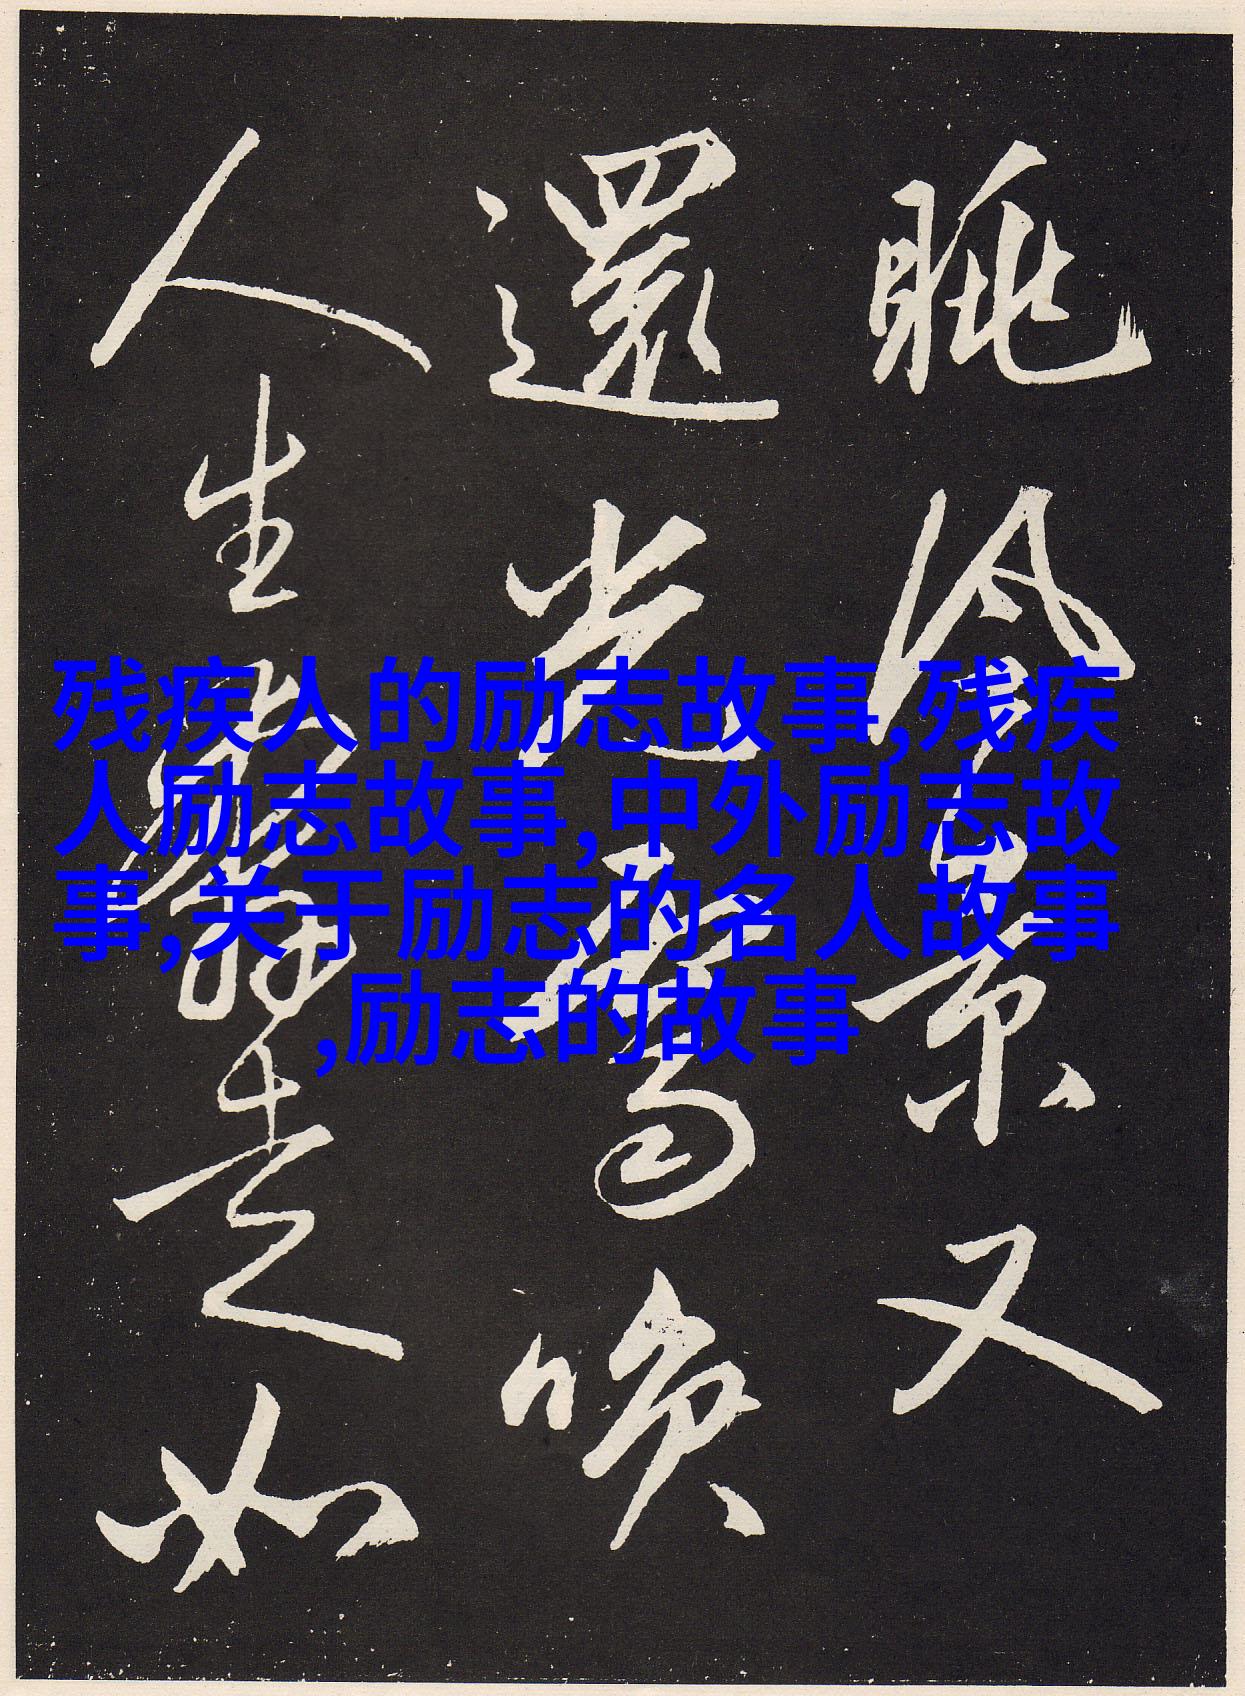 眺冷泉又
還光亭喚
人生聚散走如
残疾人的励志故事,残疾
人励志故事,中外励志故
事,关于励志的名人故事
,励志的故事